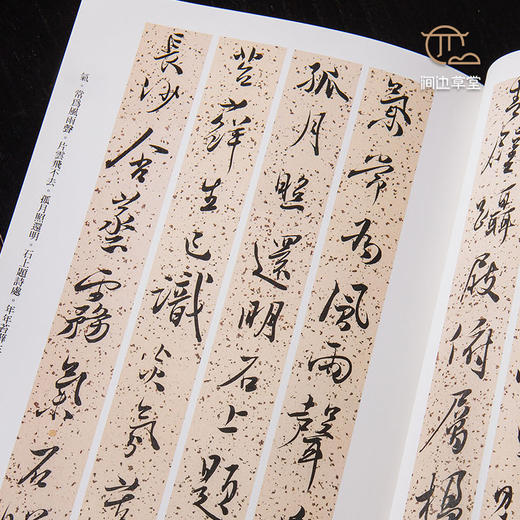 涧边草堂
壁躡屐俯層
氣常為風雨聲
孤月照還明石上題
苔蘚生已識炎氛苦
長沙含蒸霧氣石
氣。常爲風雨聲。片雲飛不去。孤月照還明。石上題詩處。年年苔蘚生